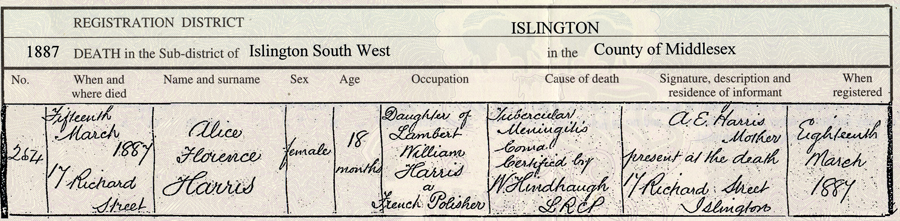 REGISTRATION DISTRICT ISLINGTON
1887 DEATH in the Sub-district of Islington South West in the County of Middlesex
No. When and where died Name and surname Sex Age Occupation Cause of death Signature, description and residence of informant When registered
264
Fifteenth
March
1887
17 Richard
Street
Alice
Florence
Harris
female
18
months
Daughter of
Lambert
William
Harris
a
French Polisher
Tubercular
Meningitis
Coma
Certified by
W Hindhaugh
LRCP
A. E. Harris
Mother
present at the death
17 Richard Street
Islington
Eighteenth
March
1887